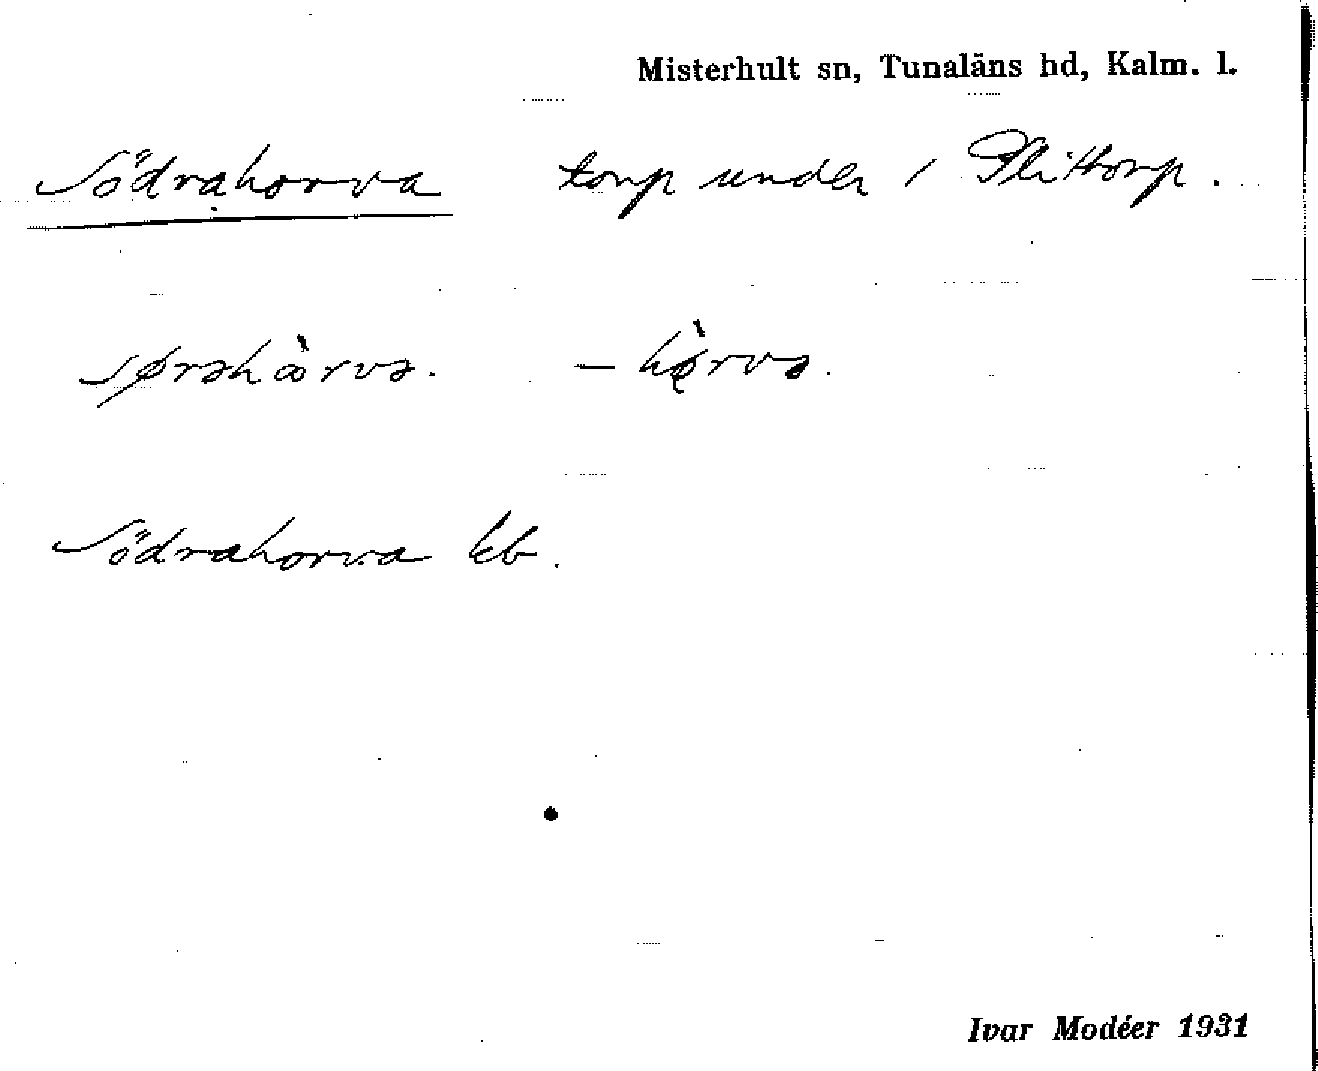 Misterhult sn, Tunaläns hd, Kalm. l.
Södrahorva torp under / Plittorp.
Södrahorva kb.
Ivar Modéer 1931